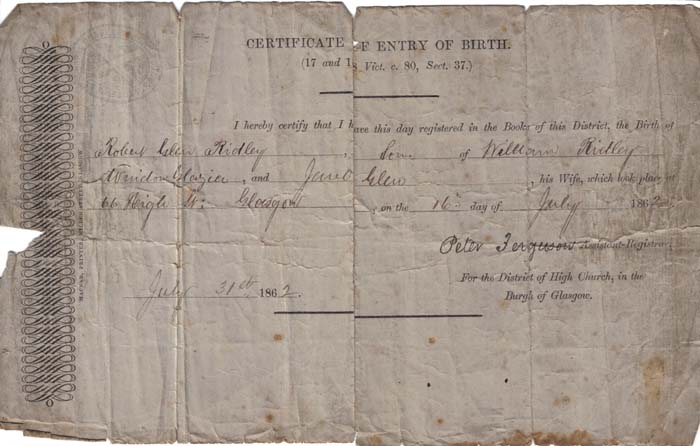 CERTIFICATE OF ENTRY OF BIRTH.
(17 and 18 Vict. c. 80, Sect. 37.)
I hereby certify that I have this day registered in the Books of this District, the Birth of
Robert Glen Ridley, Son of William Ridley
Window Glazier, and Jane Glen, his Wife, which took place at
66 High St: Glasgow, on the 16th day of July 1862
Peter Ferguson Assistant-Registrar,
For the District of High Church, in the
Burgh of Glasgow.
July 31st 1862.